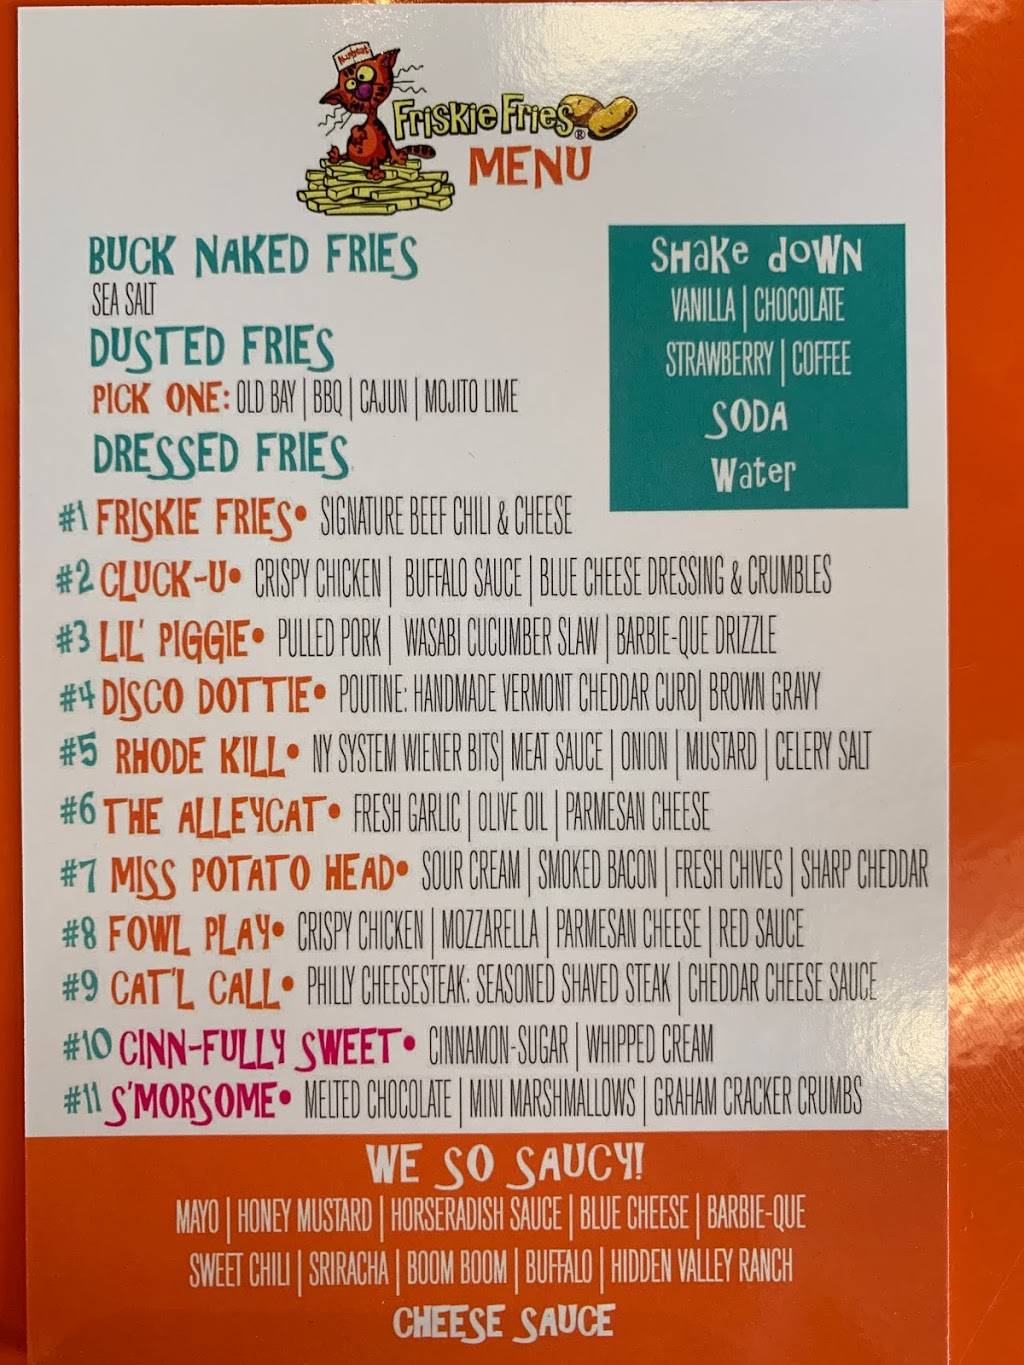 Friskie Fries®
MENU
BUCK NAKED FRIES
SEA SALT
DUSTED FRIES
PICK ONE: OLD BAY | BBQ | CAJUN | MOJITO LIME
DRESSED FRIES
SHAKE DOWN
VANILLA | CHOCOLATE
STRAWBERRY | COFFEE
SODA
Water
#1 FRISKIE FRIES• SIGNATURE BEEF CHILI & CHEESE
#2 CLUCK-U• CRISPY CHICKEN | BUFFALO SAUCE | BLUE CHEESE DRESSING & CRUMBLES
#3 LIL' PIGGIE• PULLED PORK | WASABI CUCUMBER SLAW | BARBIE-QUE DRIZZLE
#4 DISCO DOTTIE• POUTINE: HANDMADE VERMONT CHEDDAR CURD| BROWN GRAVY
#5 RHODE KILL• NY SYSTEM WIENER BITS| MEAT SAUCE | ONION | MUSTARD | CELERY SALT
#6 THE ALLEYCAT• FRESH GARLIC | OLIVE OIL | PARMESAN CHEESE
#7 MISS POTATO HEAD• SOUR CREAM | SMOKED BACON | FRESH CHIVES | SHARP CHEDDAR
#8 FOWL PLAY• CRISPY CHICKEN | MOZZARELLA | PARMESAN CHEESE | RED SAUCE
#9 CAT'L CALL• PHILLY CHEESESTEAK: SEASONED SHAVED STEAK | CHEDDAR CHEESE SAUCE
#10 CINN-FULLY SWEET• CINNAMON-SUGAR | WHIPPED CREAM
#11 S'MORSOME• MELTED CHOCOLATE | MINI MARSHMALLOWS | GRAHAM CRACKER CRUMBS
WE SO SAUCY!
MAYO | HONEY MUSTARD | HORSERADISH SAUCE | BLUE CHEESE | BARBIE-QUE
SWEET CHILI | SRIRACHA | BOOM BOOM | BUFFALO | HIDDEN VALLEY RANCH
CHEESE SAUCE